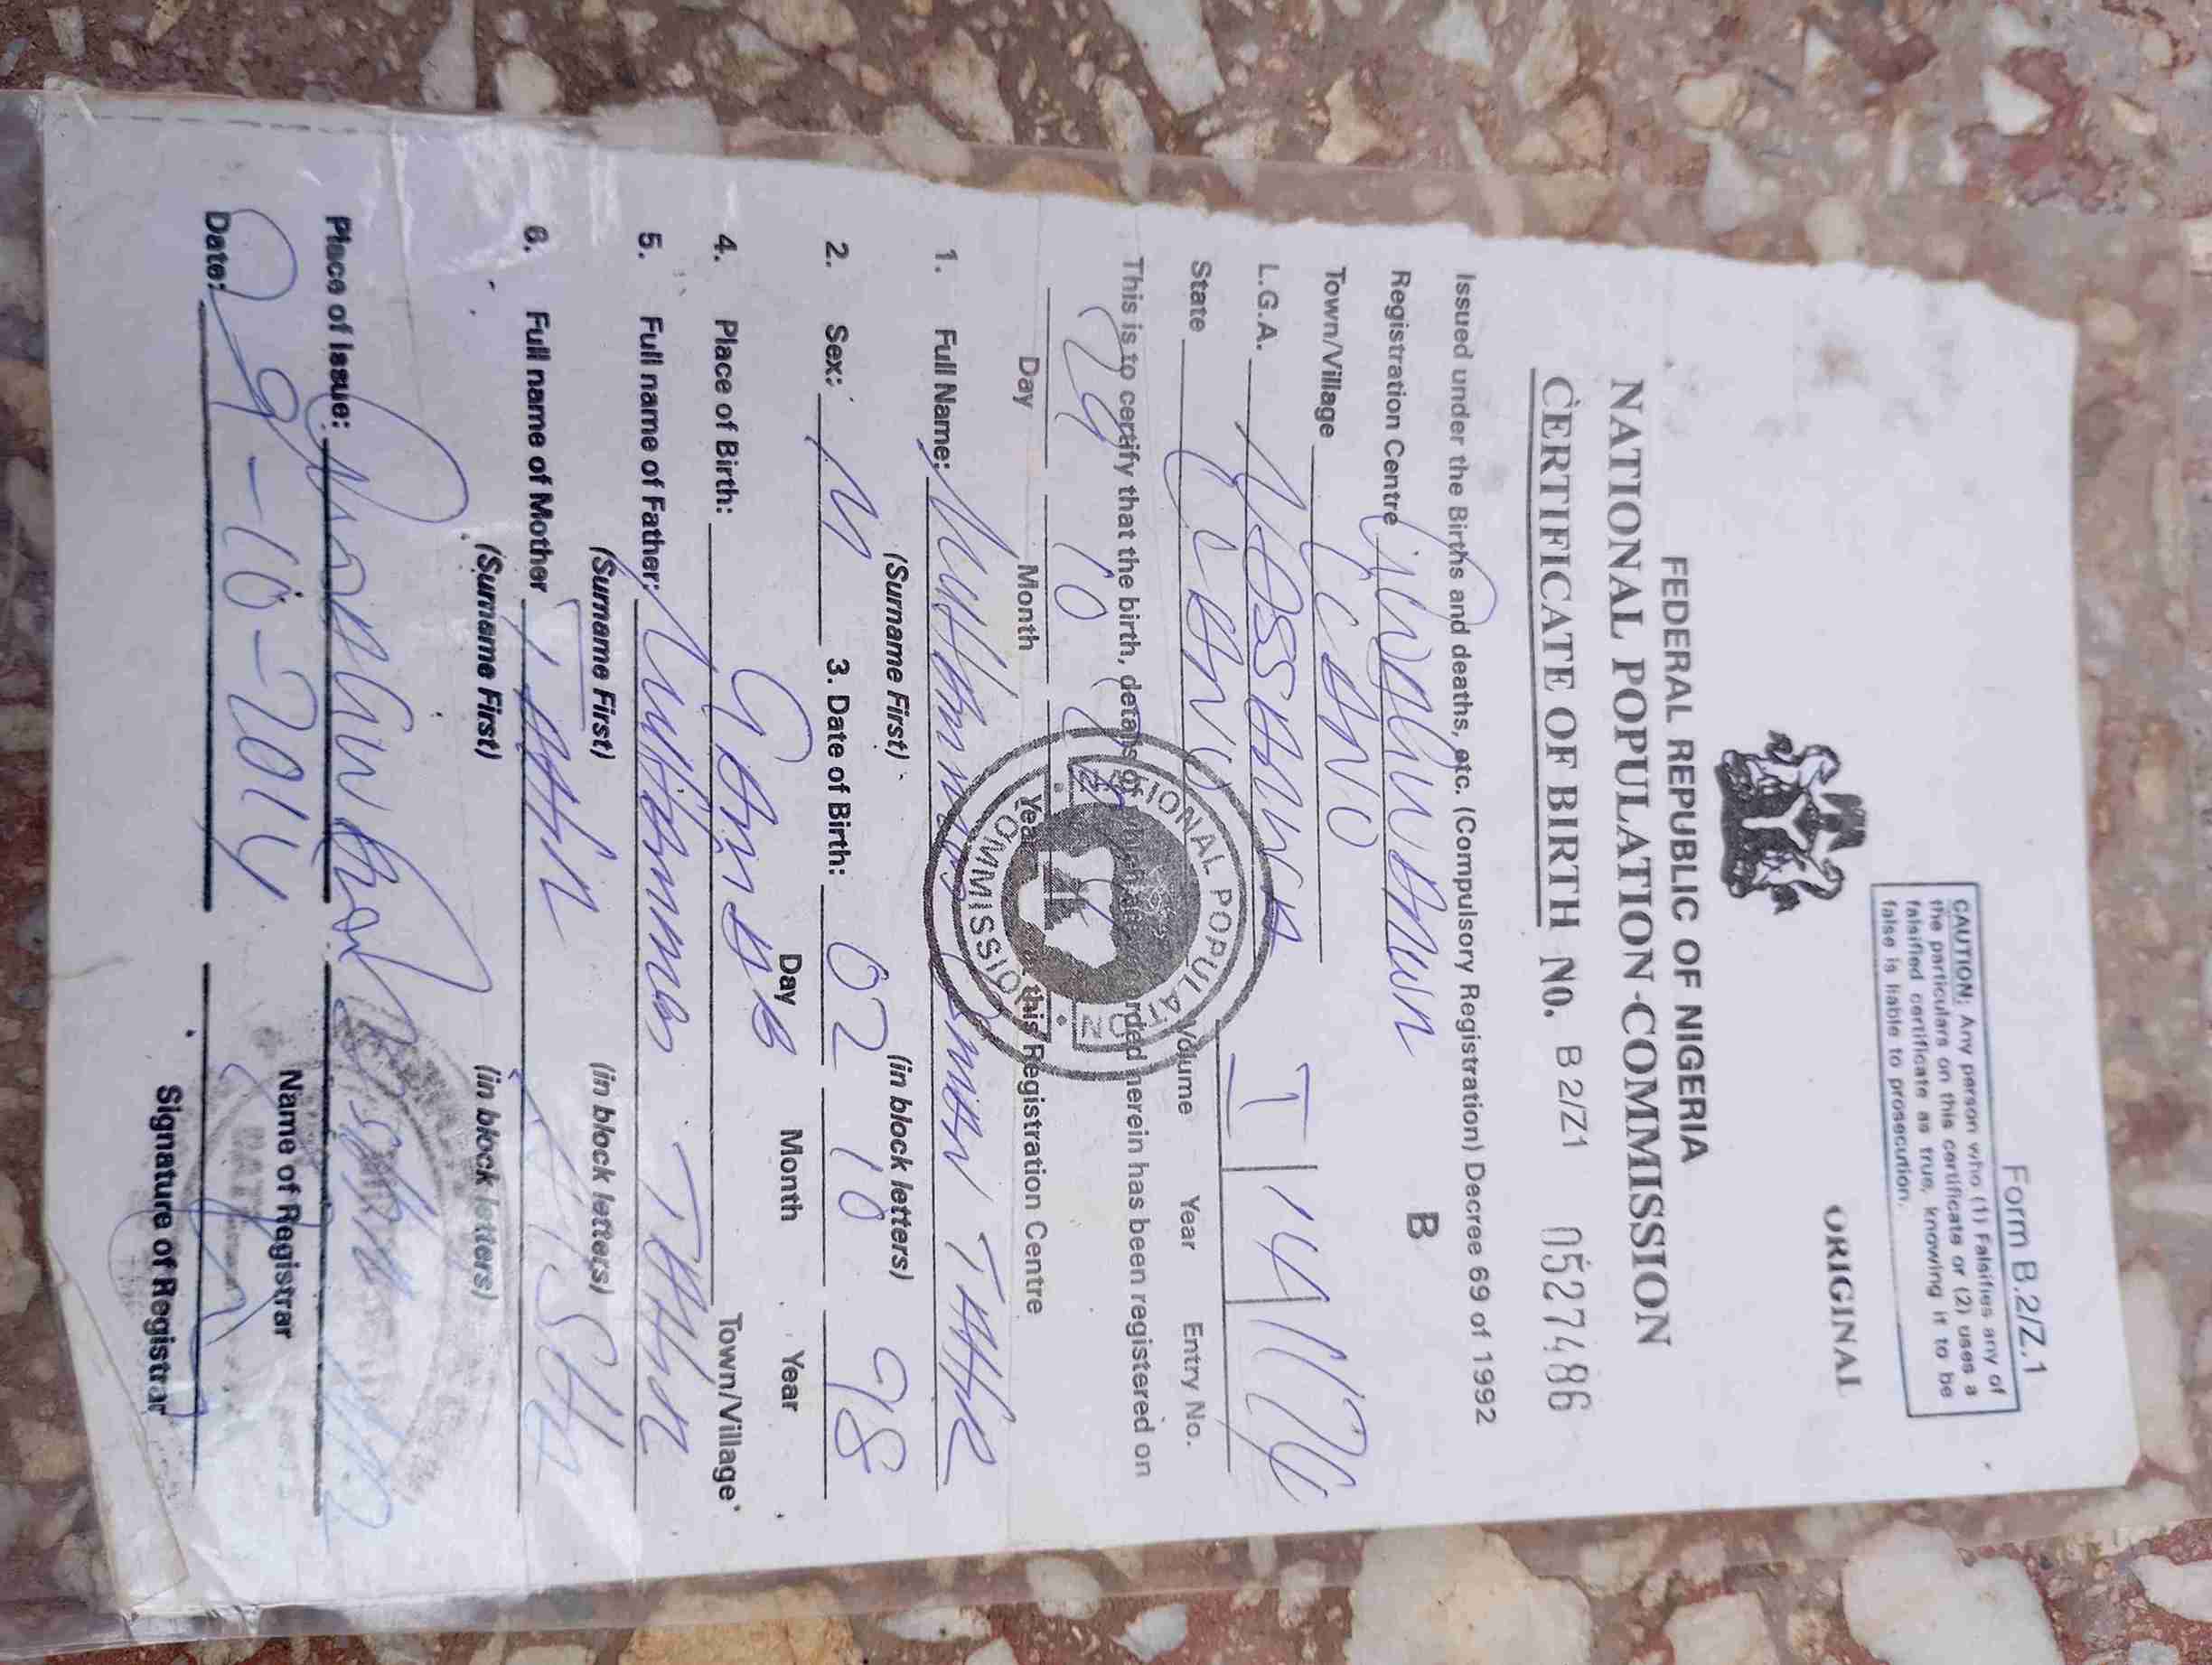 Form B.2/Z.1
CAUTION: Any person who (1) Falsifies any of
the particulars on this certificate or (2) uses a
falsified certificate as true, knowing it to be
false is liable to prosecution.
ORIGINAL
FEDERAL REPUBLIC OF NIGERIA
NATIONAL POPULATION COMMISSION
CERTIFICATE OF BIRTH NO. B2/Z1 0527486
Issued under the Births and deaths, etc. (Compulsory Registration) Decree 69 of 1992
B
Registration Centre
Town/Village KANO
L.G.A. I 14
State KANO Volume Year Entry No.
This is to certify that the birth, details of herein has been registered on
29 10
Day Month Year this Registration Centre
NATIONAL POPULATION COMMISSION
1. Full Name: MUHAMMAD USMAN TAHIR
(Surname First) (in block letters)
2. Sex: M 3. Date of Birth: 02 10 98
Day Month Year
4. Place of Birth: Town/Village
5. Full name of Father: MUHAMMAD TAHIR
(Surname First) (in block letters)
6. Full name of Mother TAHIR
(Surname First) (in block letters)
Place of Issue:
Name of Registrar
Date: 29-10-2014
Signature of Registrar